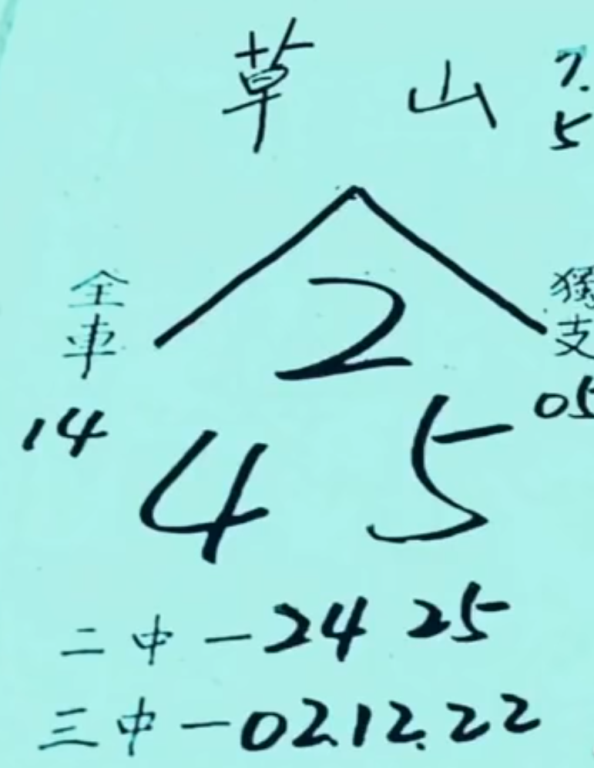 草山 7.
5
2
全車 獨支
14 05
4 5
二中-24 25
三中-02.12.22